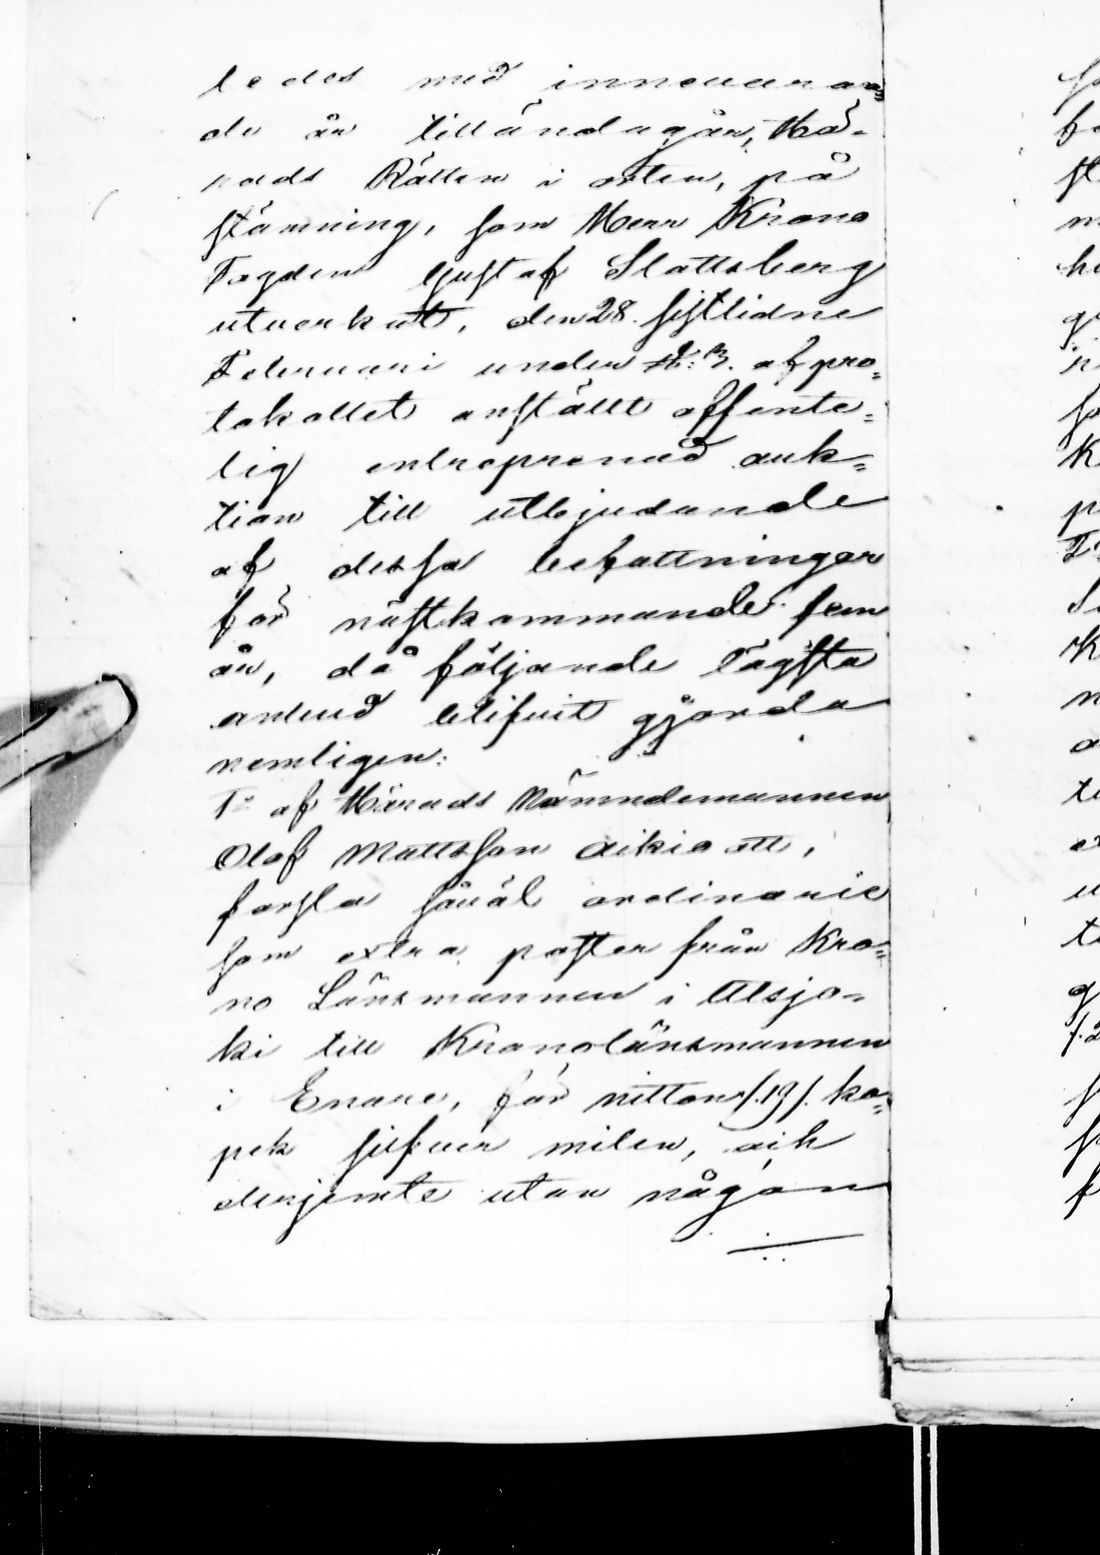 ledes med innevaran=
de år tilländagår, Hä-
rads Rätten i orten, på
stämning, som Herr Krono
Fogden Gustaf Slattsberg
utverkat, den 28. sistlidne
Februari under № 3. af pro=
tokollet anställt offente=
lig entreprenad auk=
tion till utbjudande
af dessa befattningar
för nästkommande fem
år, då följande lägsta
anbud blifvit gjorda
nemligen:
1o af Härads Nämndemannen
Olof Mattsson Aikio att,
forsla såväl ordinarie
som extra poster från Kro=
no Länsmannen i Utsjo=
ki till Kronolänsmannen
i Enare, för nitton /.19/. ko=
pek silfver milen, och
derjemte utan någon